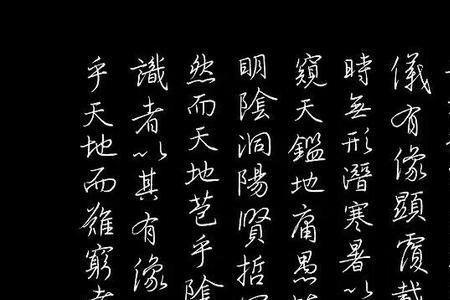 儀有像顯覆載
時無形潛寒暑以
窺天鑑地庸愚
明陰洞陽賢哲
然而天地苞乎陰
識者以其有像
乎天地而難窮